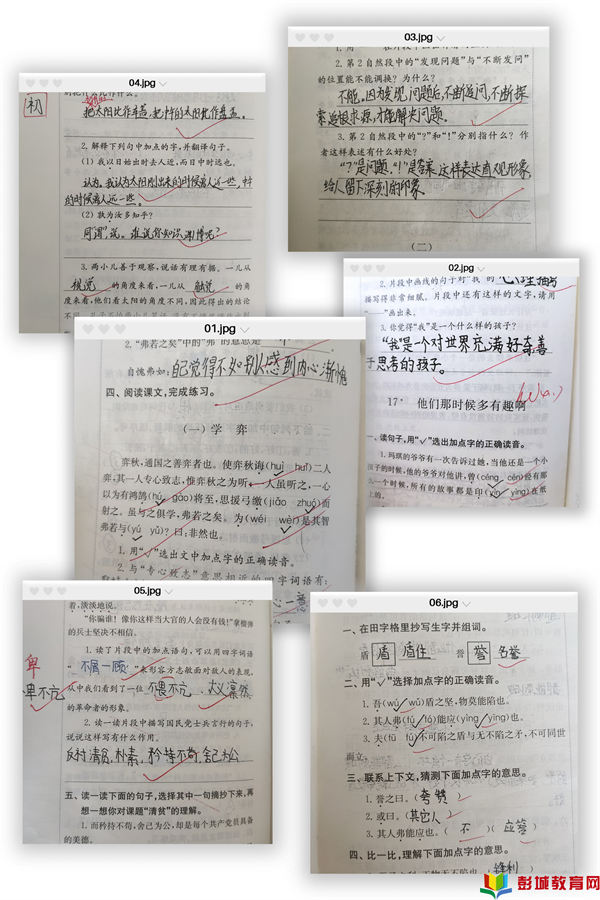 04.jpg
初
把太阳比作车盖,把中午的太阳比作盘盂。
2. 解释下列句中加点的字,并翻译句子。
(1) 我以日始出时去人近,而日中时远也。
认为。我认为太阳刚出来的时候离人近一些,中午
的时候离人远一些。
(2) 孰为汝多知乎?
同“谓”,说。谁说你知识渊博呢?
3. 两小儿善于观察,说话有理有据。一儿从
视觉 的角度来看,一儿从 触觉 的角
度来看,他们看太阳的角度不同,因此得出的结论
03.jpg
2. 第2自然段中的“发现问题”与“不断发问”
的位置能不能调换?为什么?
不能。因为发现问题后,不断追问,不断探
索追根求源,才能解决问题。
3. 第2自然段中的“?”和“!”分别指什么?作
者这样表述有什么好处?
“?”是问题,“!”是答案,这样表达直观形象,
给人留下深刻的印象。
(二)
02.jpg
2. 片段中画线的句子对“我”的
描写得非常细腻。片段中还有这样的文字,请用
“——”画出来。
3. 你觉得“我”是一个什么样的孩子?
“我”是一个对世界充满好奇善
于思考的孩子。
17* 他们那时候多有趣啊
一、读句子,用“√”选出加点字的正确读音。
1. 玛琪的爷爷有一次告诉过她,当他还是一个小
孩子的时候,他的爷爷对他讲,曾(céng cén)经有那
么一个时候,所有的故事都是印(yìn yìng)在纸
上的。
01.jpg
2. “弗若之矣”中的“弗”的意思是
自愧弗如: 自己觉得不如别人感到内心渐愧
四、阅读课文,完成练习。
(一)学 弈
弈秋,通国之善弈者也。使弈秋诲(huì huǐ)二人
弈,其一人专心致志,惟弈秋之为听;一人虽听之,一心
以为有鸿鹄(hú gào)将至,思援弓缴(jiǎo zhuó)而
射之。虽与之俱学,弗若之矣。为(wéi wèi)是其智
弗若与(yú yǔ)?曰:非然也。
1. 用“√”选出文中加点字的正确读音。
2. 与“专心致志”意思相近的四字词语有:
05.jpg
着,淡淡地说。
“你骗谁!像你这样当大官的人会没有钱!”拿榴弹
的兵士坚决不相信。
1. 读了片段中的加点语句,可以用四字词语
“ 不屑一顾 ”来形容方志敏面对敌人的表现,
从中我们看到了一位 不畏不亢 、 大义凛然
的革命者的形象。
卑
卑不亢
2. 读一读片段中描写国民党士兵言行的句子,
说说这样写有什么作用。
反衬清贫,朴素,矜持不苟,舍己为公
五、读一读下面的句子,选择其中一句摘抄下来,再
想一想你对课题“清贫”的理解。
1. 而矜持不苟,舍己为公,却是每个共产党员具备
的美德。
06.jpg
一、在田字格里抄写生字并组词。
盾 盾 盾住 誉 誉 名誉
二、用“√”选择加点字的正确读音。
1. 吾(wú wǔ)盾之坚,物莫能陷也。
2. 其人弗(fú fó)能应(yìng yīng)也。
3. 夫(fū fú)不可陷之盾与无不陷之矛,不可同世
而立。
三、联系上下文,猜测下面加点字的意思。
1. 誉之曰。( 夸赞 )
2. 或曰。( 其它人 )
3. 其人弗能应也。( 不 )( 应答 )
四、比一比,理解下面加点字的意思。
彭城教育网